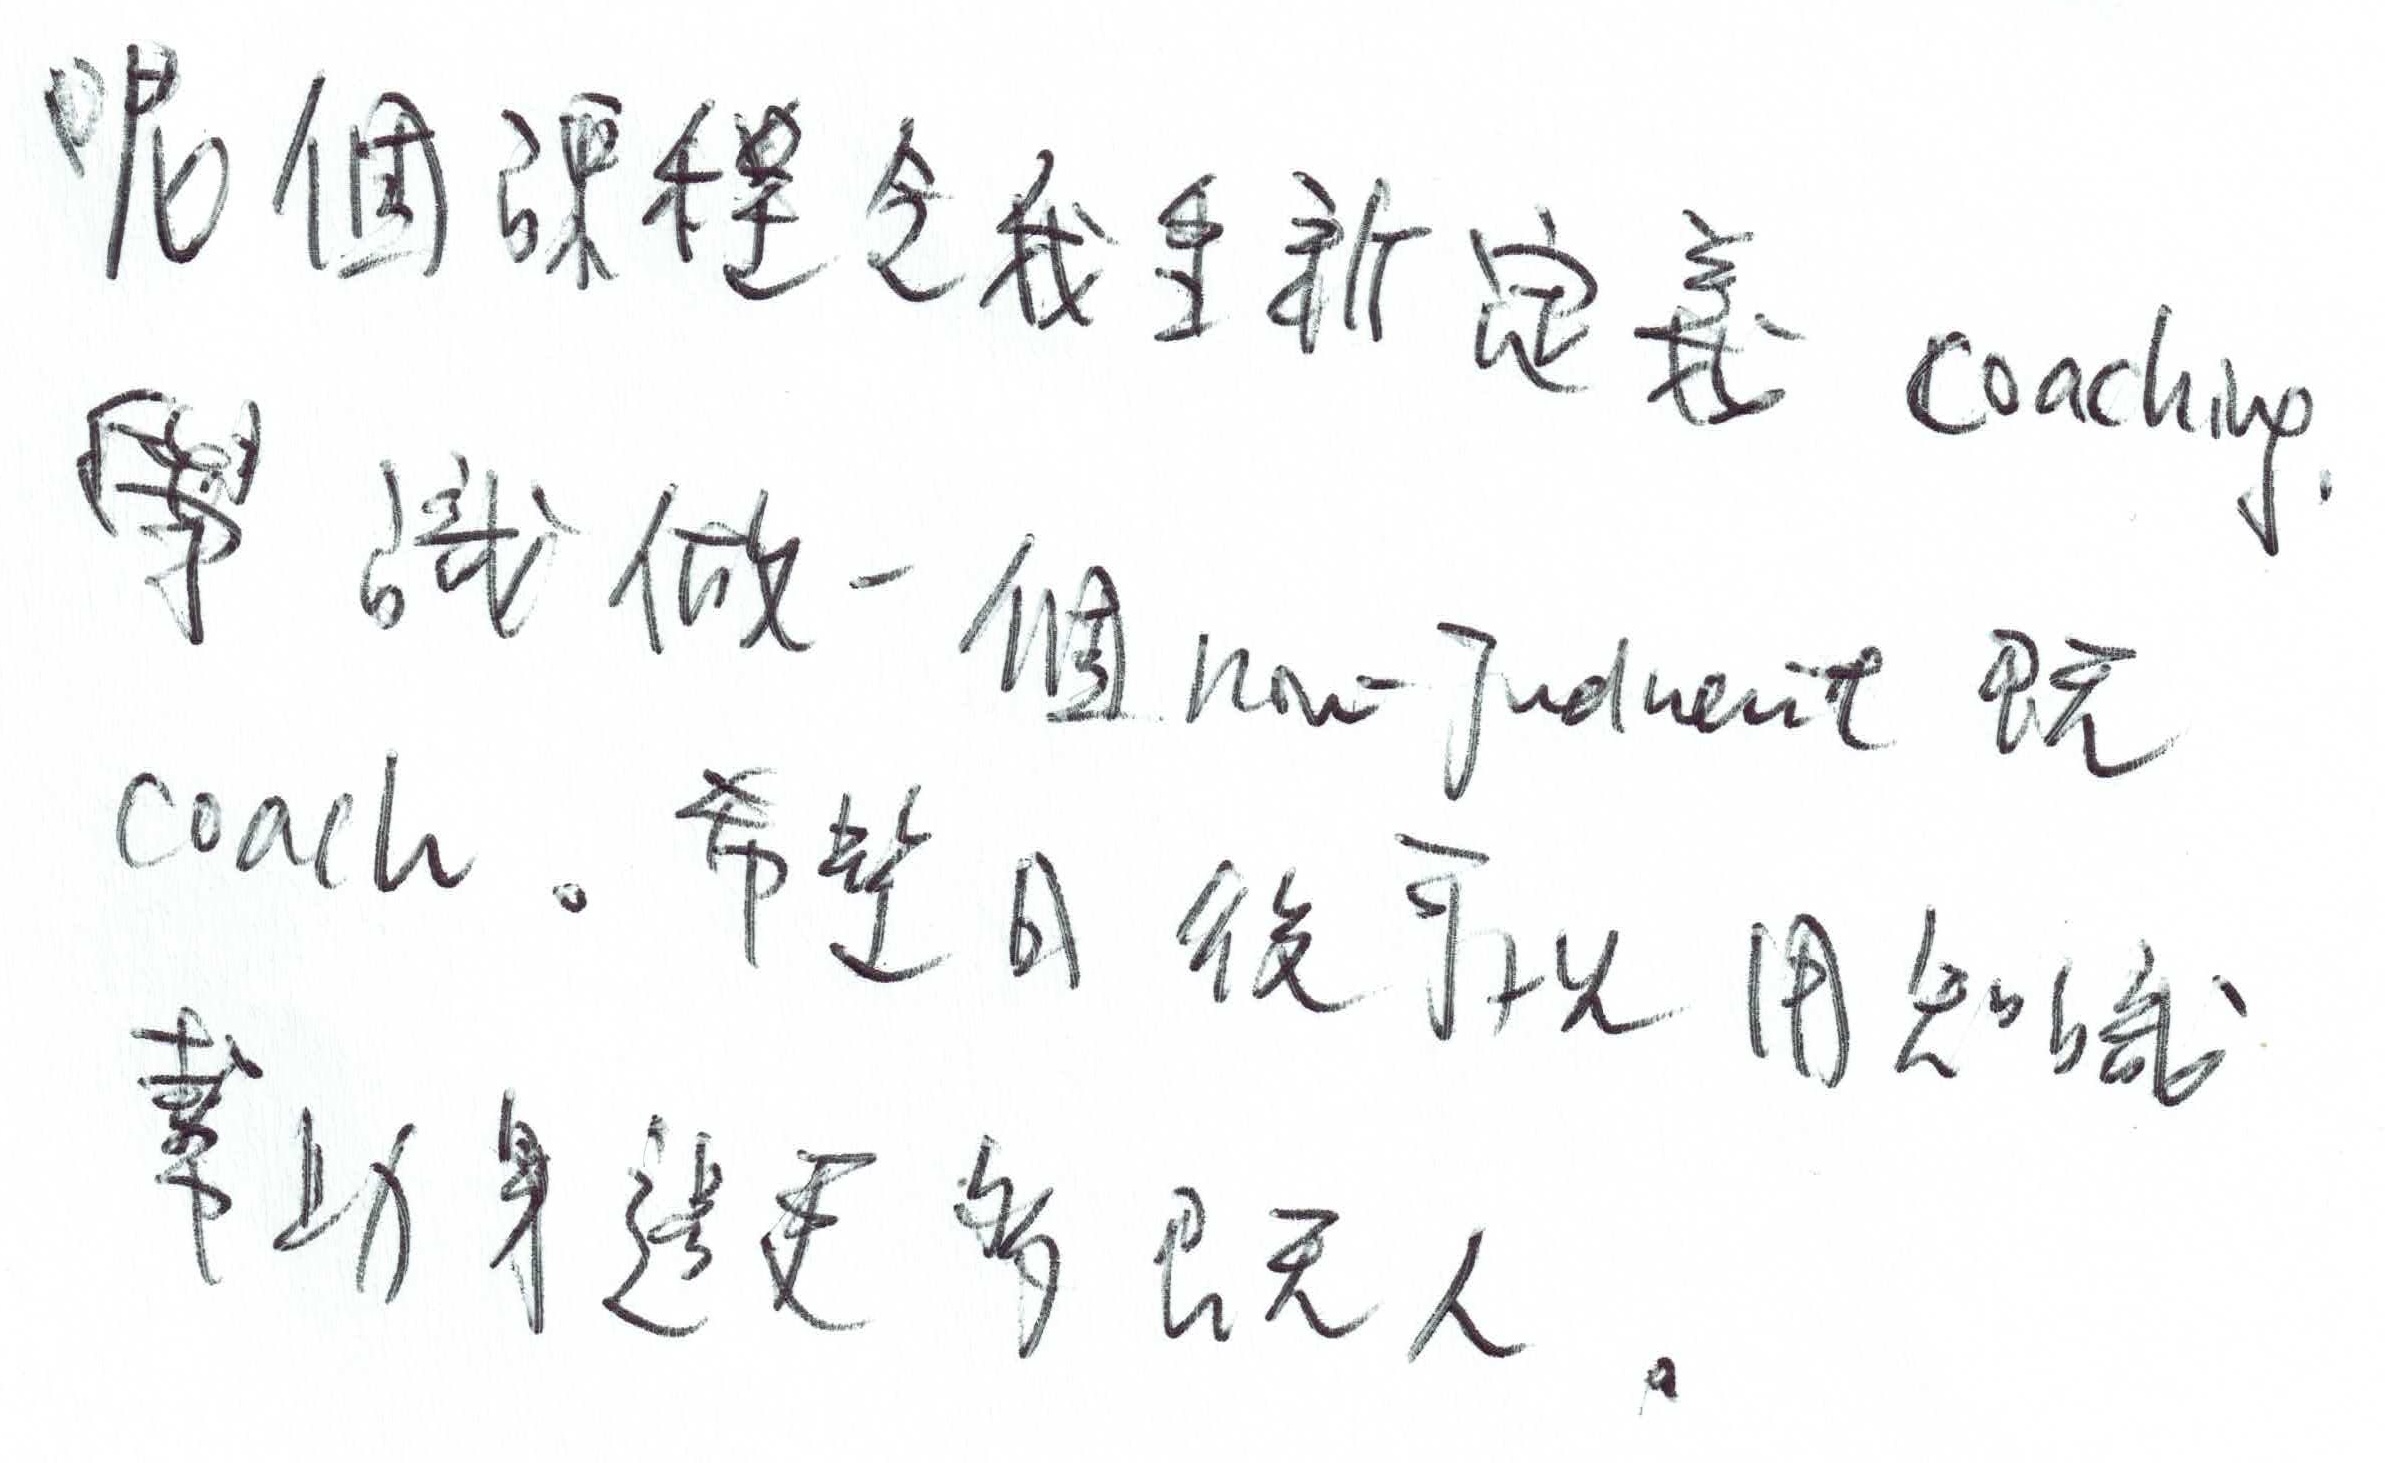 呢個課程令我重新定義 coaching.
學識做一個 non-Judment 既
coach。希望日後可以用知識
幫助身邊更多既人。